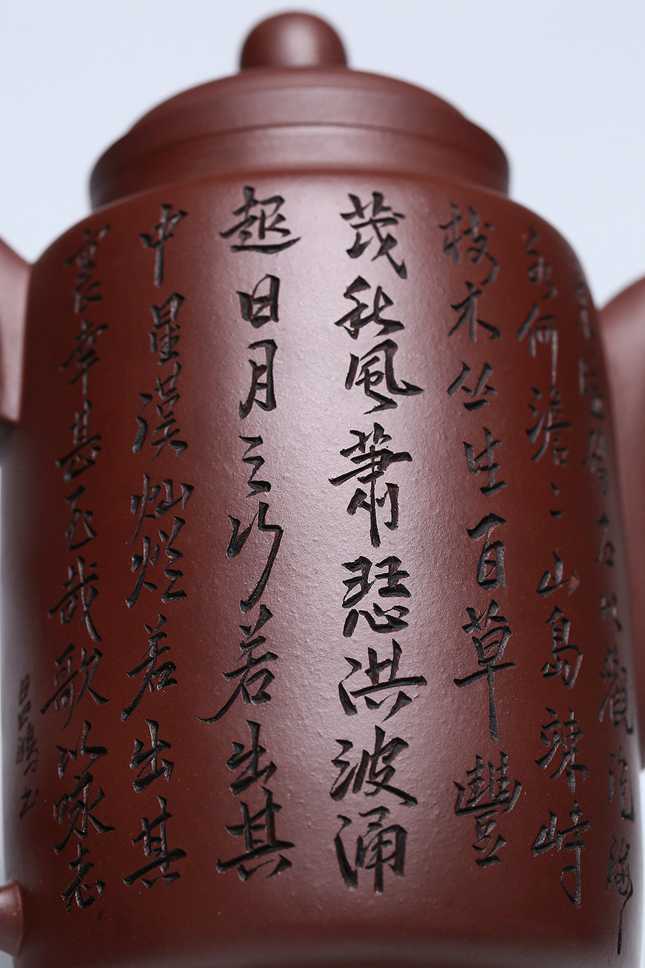 東临碣石以觀滄海
水何澹〻山島竦峙
樹木丛生百草豐
茂秋風蕭瑟洪波涌
起日月之行若出其
中星漢灿烂若出其
裏幸甚至哉歌以咏志